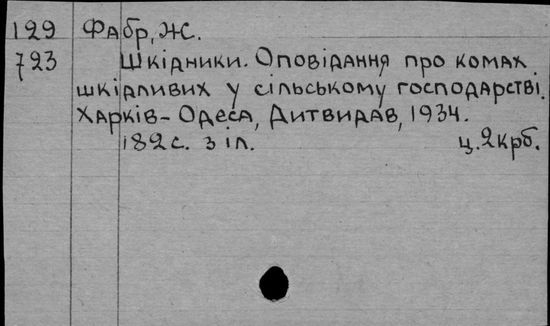 129 Фабр, Ж.
723 Шкідники. Оповідання про комах
шкідливих у сільському господарстві.
Харків-Одеса, Дитвидав, 1934.
182с. з іл. ц. 2 крб.